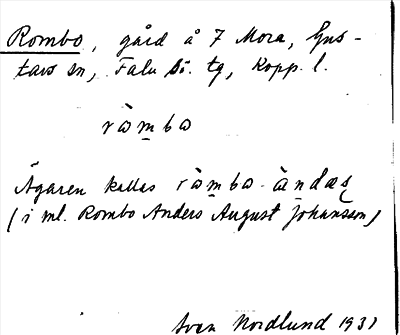 Rombo, gård å 7 Mora, Gus-
tavs sn, Falu Sö. tg, Kopp. l.
ròmbo
Ägaren kallas ròmbo-àndas
(i ml. Rombo Anders August Johansson)
Sven Nordlund 1931